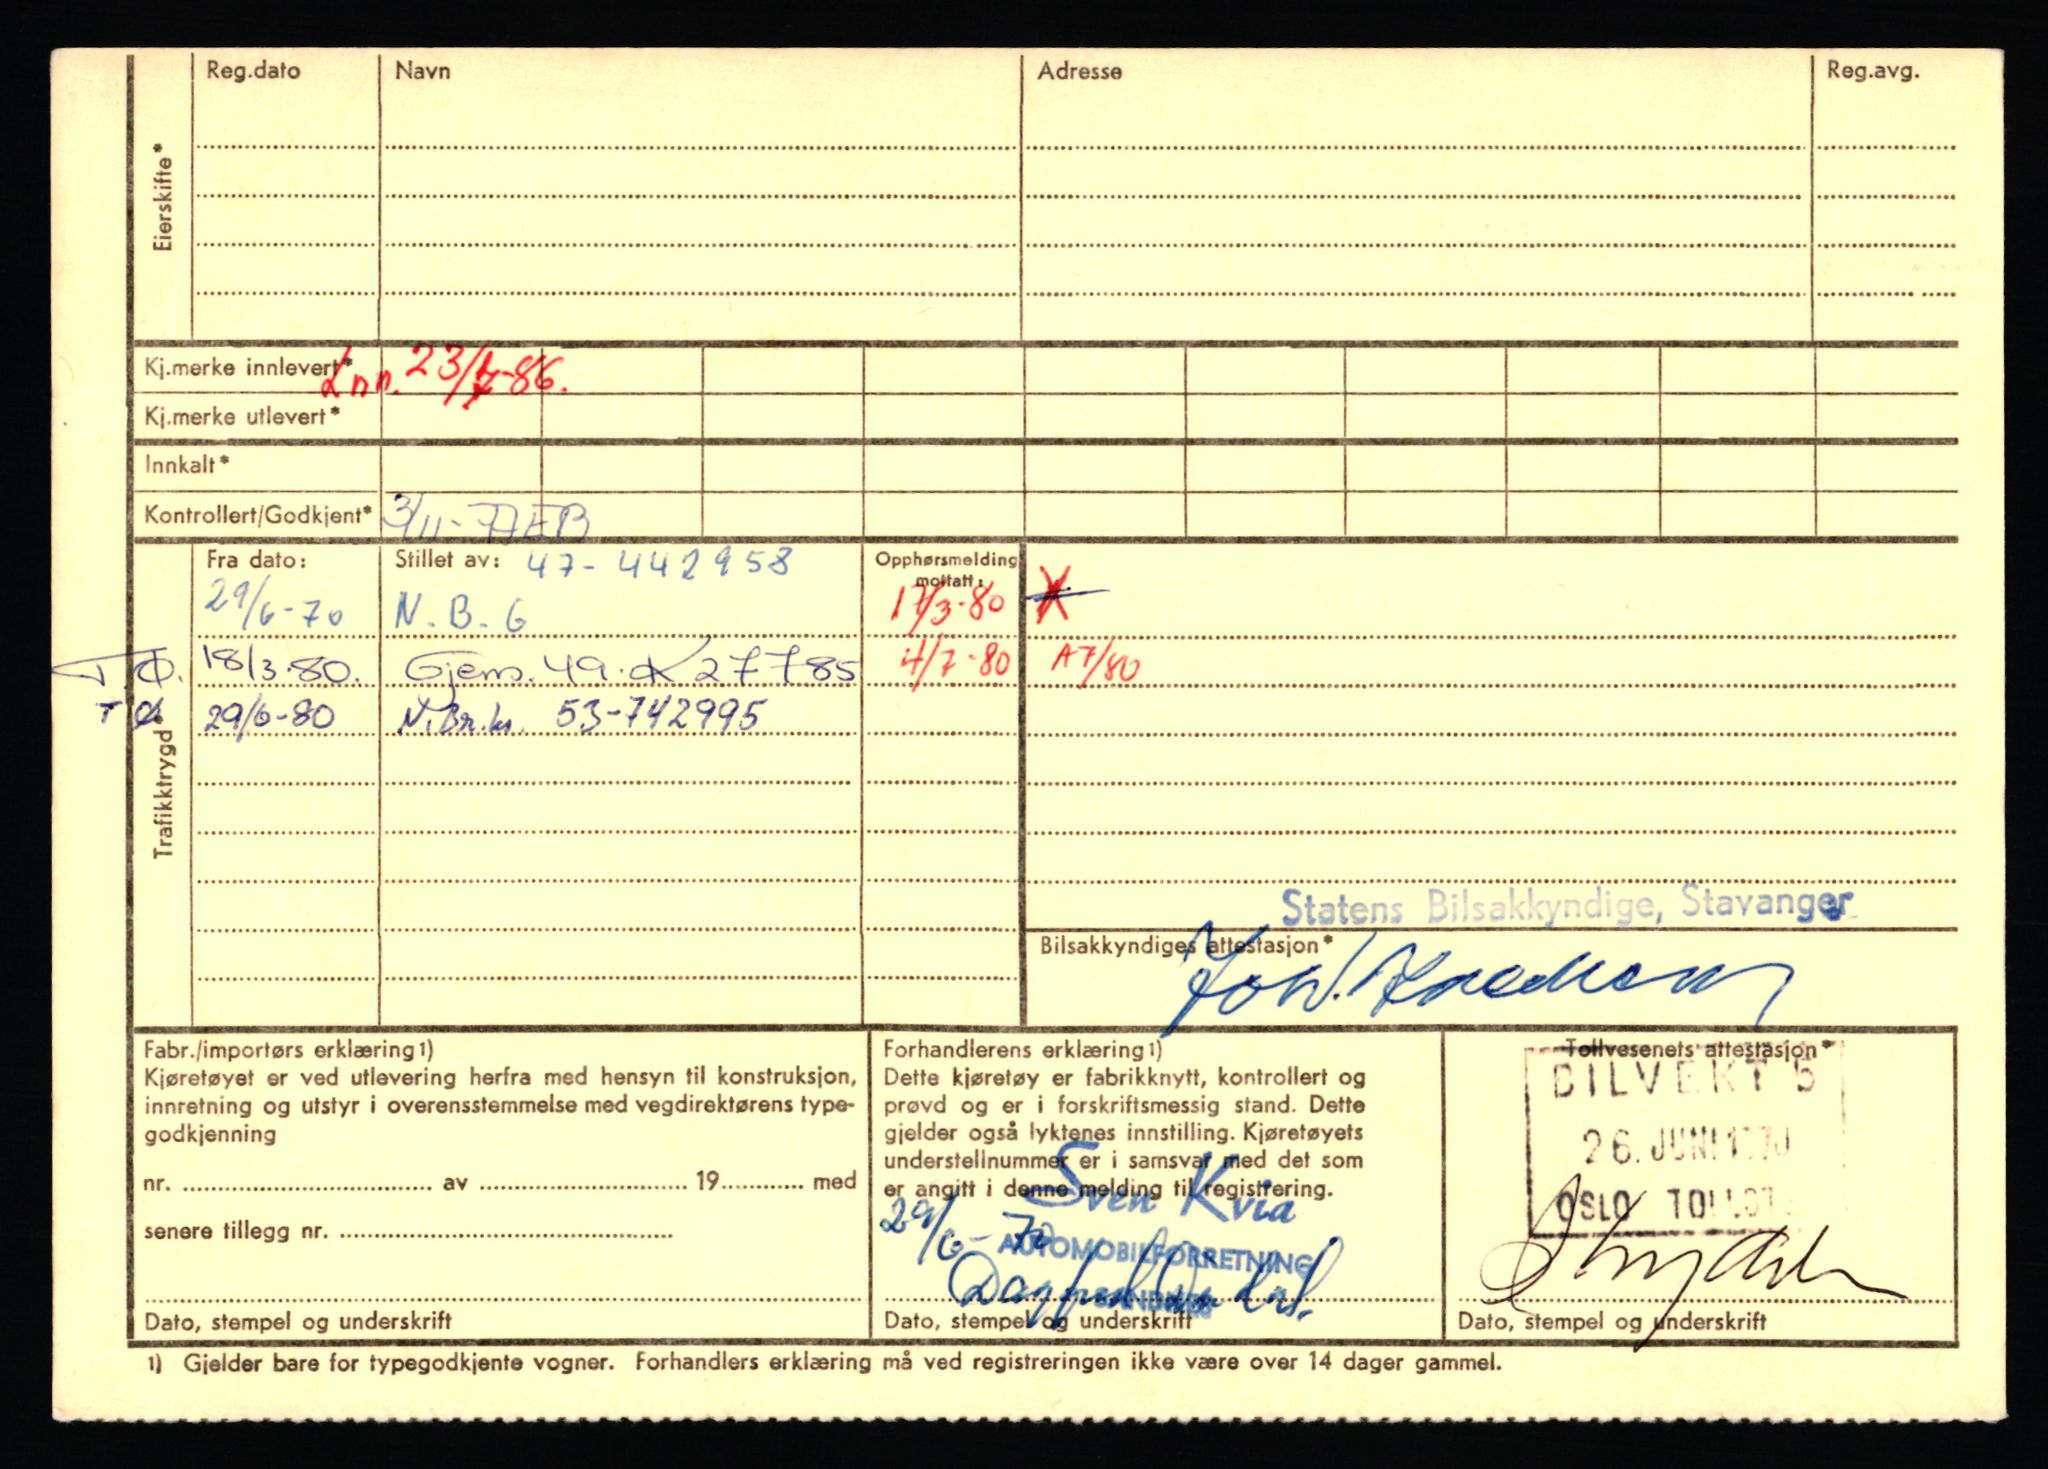 Reg.dato Navn Adresse Reg.avg.
Eierskifte*
Kj.merke innlevert* Inn. 23/7-86.
Kj.merke utlevert*
Innkalt*
Kontrollert/Godkjent* 3/11-77 EB
Trafikktrygd
Fra dato: Stillet av: 47-442958 Opphørsmelding mottatt:
29/6-70 N.B.G 17/3-80 X
TØ. 18/3.80. Gjens. 49.K27785 4/7-80 A7/80
TØ 29/6-80 N.Br.ks. 53-742995
Statens Bilsakkyndige, Stavanger
Bilsakkyndiges attestasjon*
Fabr./importørs erklæring1)
Kjøretøyet er ved utlevering herfra med hensyn til konstruksjon,
innretning og utstyr i overensstemmelse med vegdirektørens type-
godkjenning
nr. av 19 med
senere tillegg nr.
Dato, stempel og underskrift
Forhandlerens erklæring1)
Dette kjøretøy er fabrikknytt, kontrollert og
prøvd og er i forskriftsmessig stand. Dette
gjelder også lyktenes innstilling. Kjøretøyets
understellnummer er i samsvar med det som
er angitt i denne melding til registrering.
Sven Kvia
29/6-70
AUTOMOBILFORRETNING
SANDNES
Dato, stempel og underskrift
Tollvesenets attestasjon*
BILVEKT 5
26. JUNI 1970
OSLO TOLLST.
Dato, stempel og underskrift
1) Gjelder bare for typegodkjente vogner. Forhandlers erklæring må ved registreringen ikke være over 14 dager gammel.